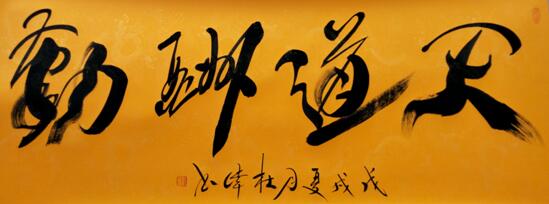 天道酬勤
戊戌夏月杜书